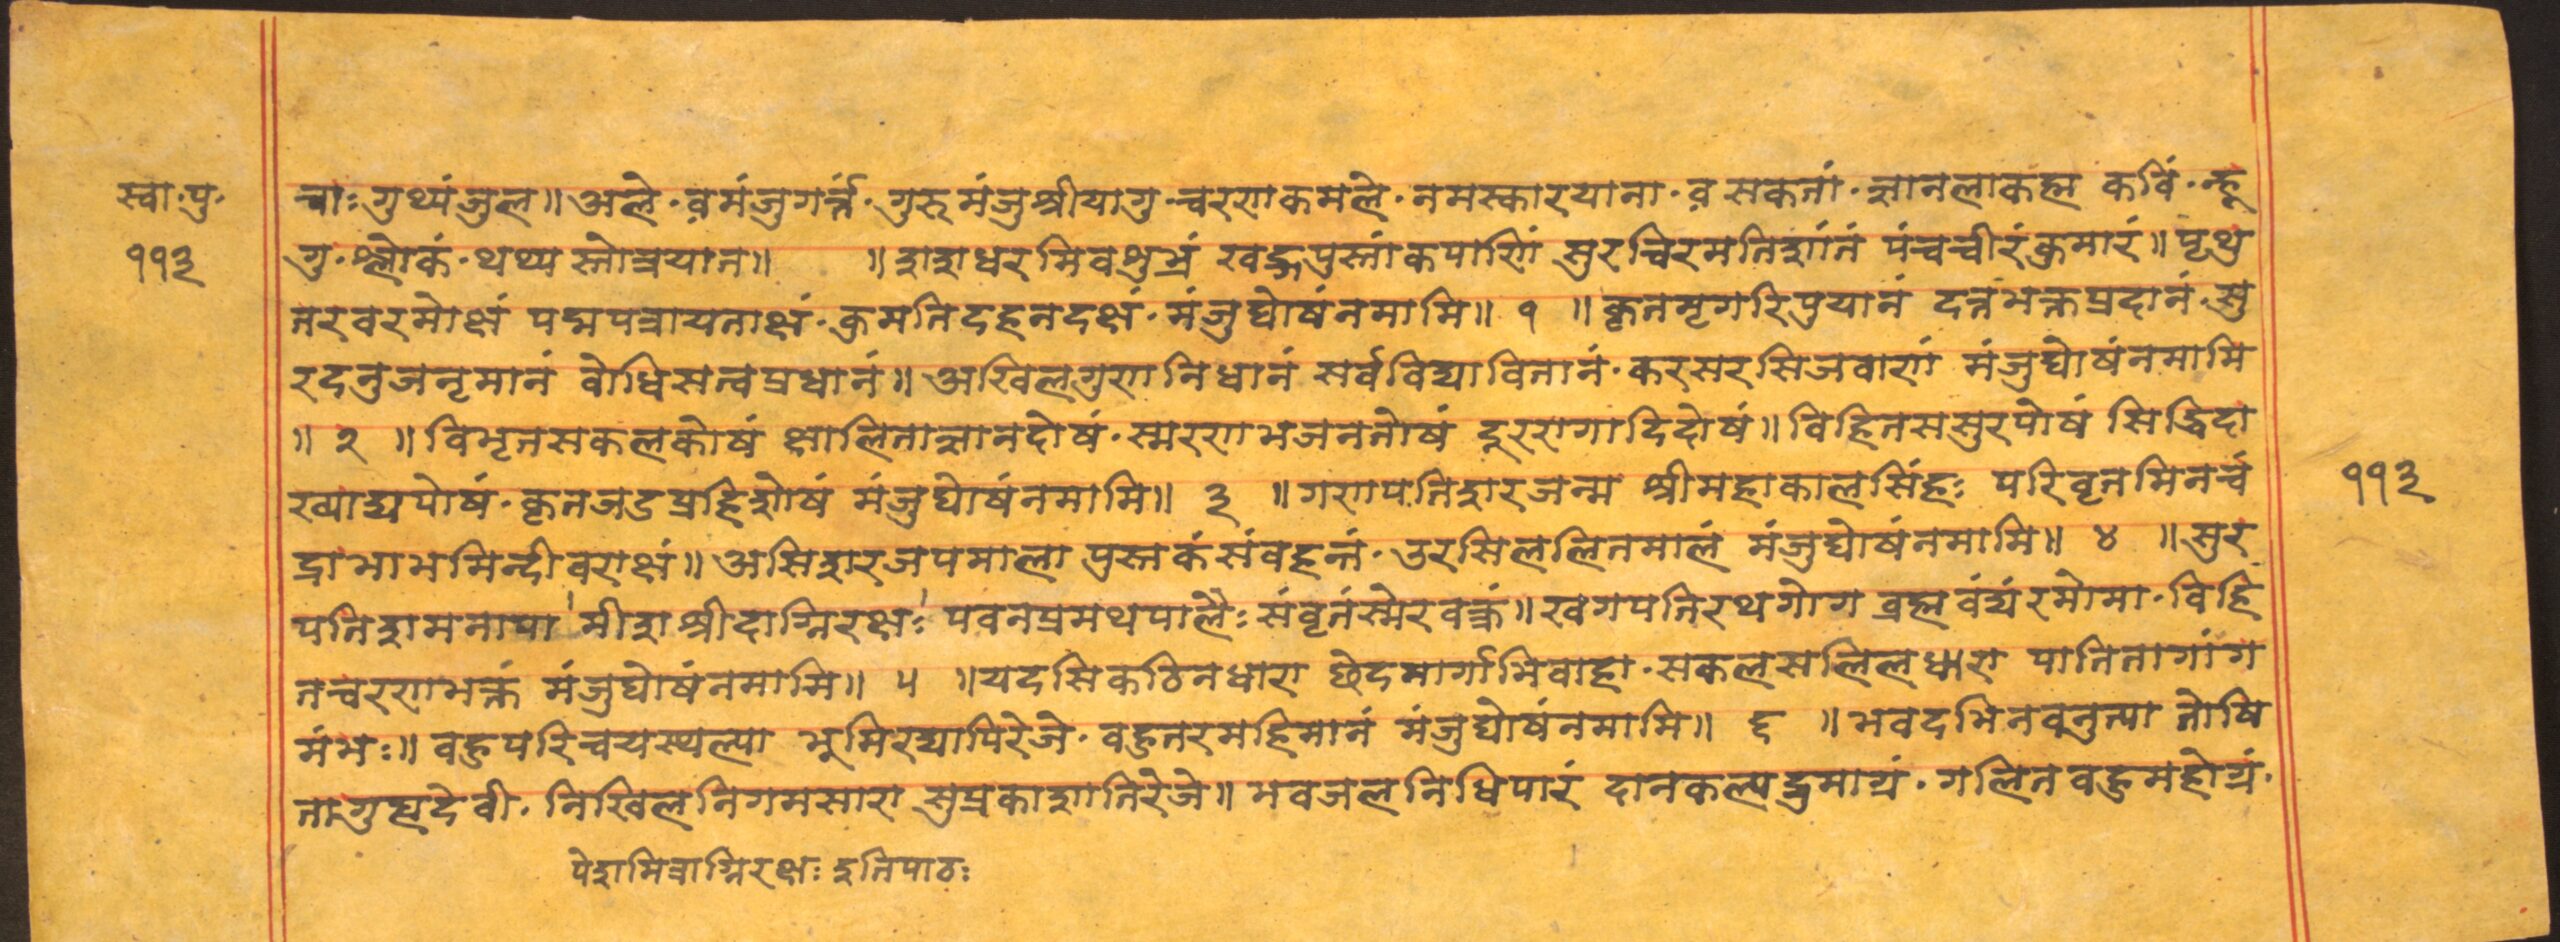 स्वा॰पु॰
११३
चाः गुथ्यंजुल॥ अले॰ व़मंजुगर्त्तं॰ गुरूमंजुश्रीयागु॰ चरणकमले॰ नमस्कारयाना॰ व़सकतां॰ ज्ञानलाकह्म कविं॰ न्हू
गु॰ श्लोकं॰ थथ्य स्तोत्रयात॥ ॥ शशधरमिवशुभ्रं खड्गपुस्तांकपाणिं सुरुचिरमतिशांतं पंचचीरंकुमारं॥ पृथु
तरवरमोक्षं पद्मपत्रायताक्षं॰ कुमतिदहनदक्षं॰ मंजुघोषंनमामि॥ १ ॥ कृतमृगरिपुयानं दत्तभक्तप्रदानं॰ सु
रदनुजनृमानं वोधिसत्वप्रधानं॥ अखिलगुणनिधानं सर्वविद्यावितानं॰ करसरसिजवाणं मंजुघोषंनमामि
॥ २ ॥ विभृतसकलकोषं क्षालिताज्ञानदोषं॰ स्मरणभजनतोषं दूररागादिदोषं॥ विहितससुरपोषं सिद्धिदा
ख्याद्यपोषं॰ कृतजडप्रहिशेषं मंजुघोषंनमामि॥ ३ ॥ गणपतिशरजन्म श्रीमहाकालसिंहः परिवृतमितचं
द्राभाभमिन्दीवराक्षं॥ असिशरजपमाला पुस्तकंसंवहन्तं॰ उरसिललितमालं मंजुघोषंनमामि॥ ४ ॥ सुर
पतिशमनापा मीशश्रीदाग्निरक्षः पवनप्रमथपालैः संवृतंस्मेरवक्त्रं॥ खगपतिरथगोग व्रह्मवंद्यंरमोमा॰ विहि
तचरणभक्तं मंजुघोषंनमामि॥ ५ ॥ यदसिकठिनधारा छेदमार्गाभिवाहा॰ सकलसलिलधारा पातितागांग
मंभः॥ वहुपरिचयस्थल्पा भूमिरद्यापिरेजे॰ वहुतरमहिमानं मंजुघोषंनमामि॥ ६ ॥ भवदभिनवनुत्या तोषि
तागुह्यदेवी॰ निखिलनिगमसारा सुप्रकाशातिरेजे॥ भवजलनिधिपारं दानकल्पद्रुमाग्रं॰ गलितवहुमहोग्रं॰
पेशमित्राग्निरक्षः इतिपाठः
११३